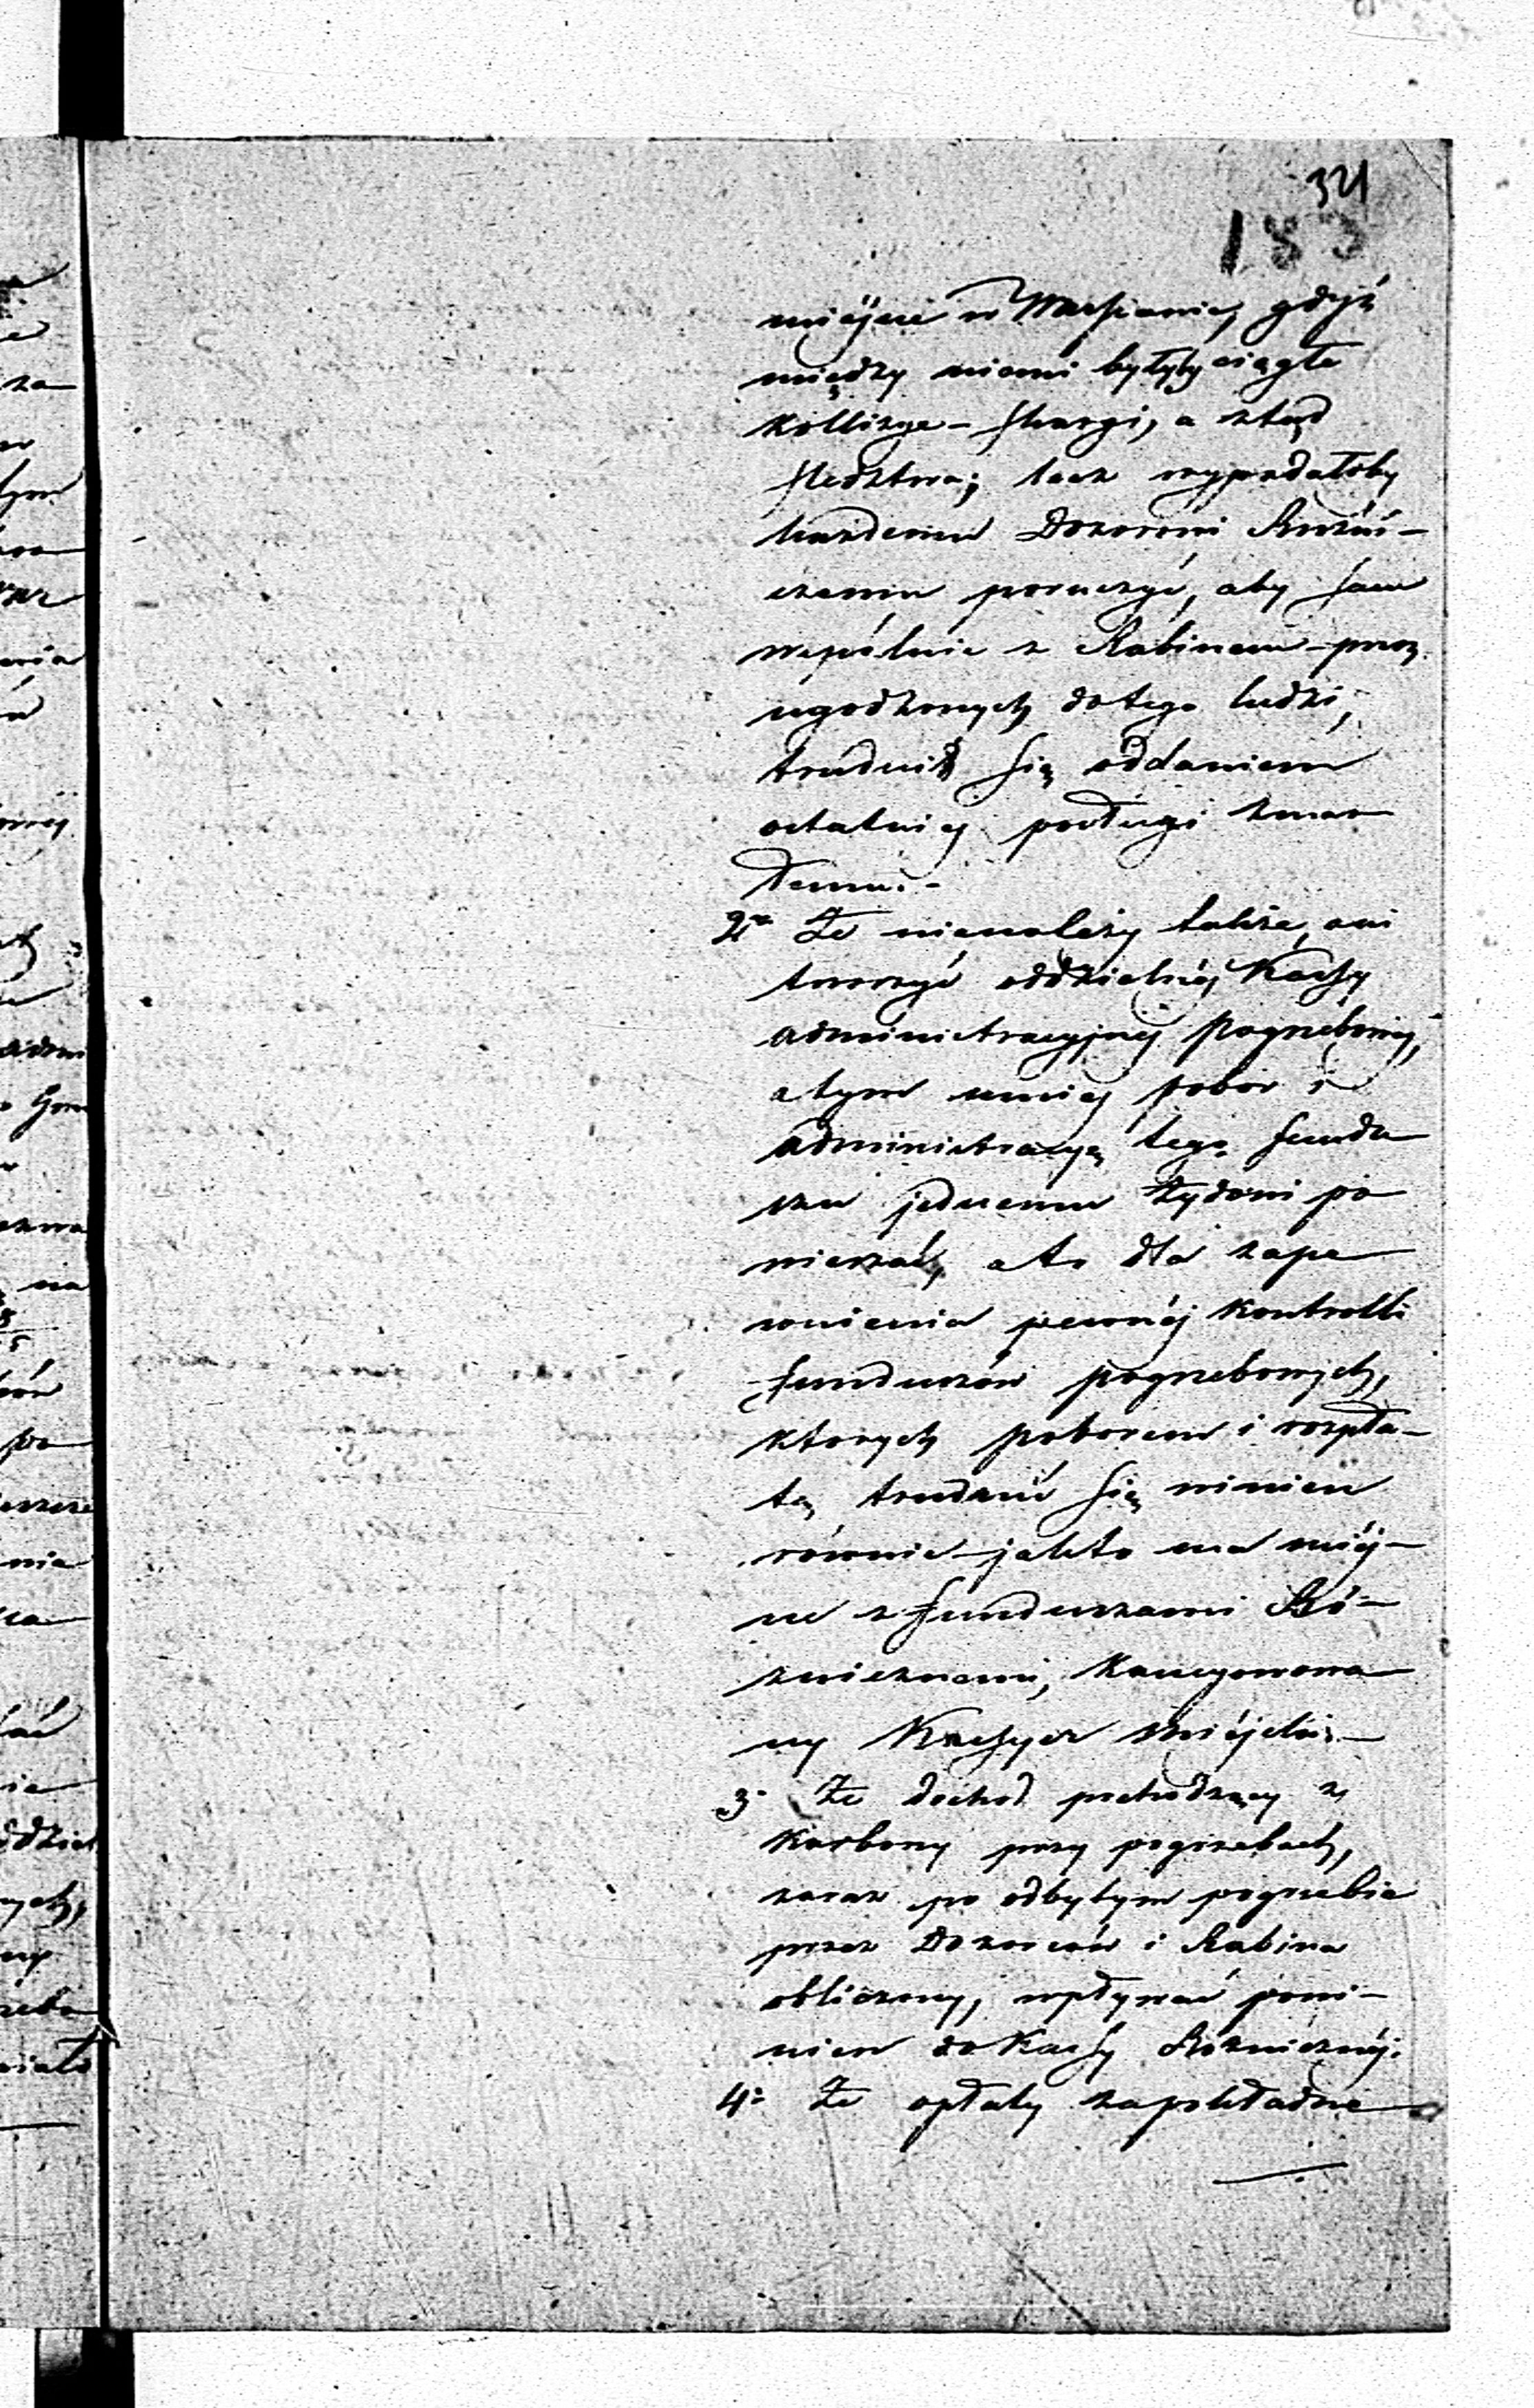 321
183
miéjsce w Warszawie, gdyż
między niemi byłyby ciągłe
kollizye – skargi, a ztąd
sledztwa; lecz wypadałoby
każdemu Dozorowi Bóżni-
czemu poruczyć, aby sam
wspólnie z Rabinem – przez
ugodzonych do tego ludzi,
trudnił się oddaniem
ostatniej posługi zmar
łemu. –
2o Że nienależy także, ani
tworzyć oddzielnéj Kassy
administracyjnej Pogrzebowej,
a tym mniej pobor i
administracyą tego fundu
szu jednemu Żydowi po
wierzać, a to dla zape
wnienia pewnéj Kontrolli
funduszów pogrzebowych,
których poborem i rozpła-
tą trudnić się winien
równie – jak to ma miéj-
sce z funduszami Bó-
żnicznemi, Kaucyonowa
ny Kassyer Miéjski. –
3o Że dochod pochodzący z
Karbony przy pogrzebach,
zaraz po odbytym pogrzebie
przez Dozorców i Rabina
obliczony, wpływać powi-
nien do Kassy Bóżnicznéj.
4o Że opłaty za pokładne